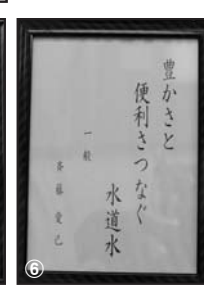 豊かさと
便利さつなぐ
水道水
一般
斉藤愛己
⑥